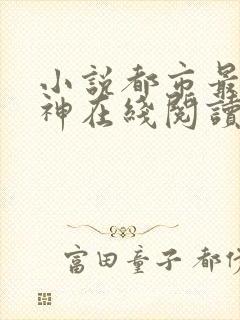 小説都市最
神在綫閱讀
富田童子 都